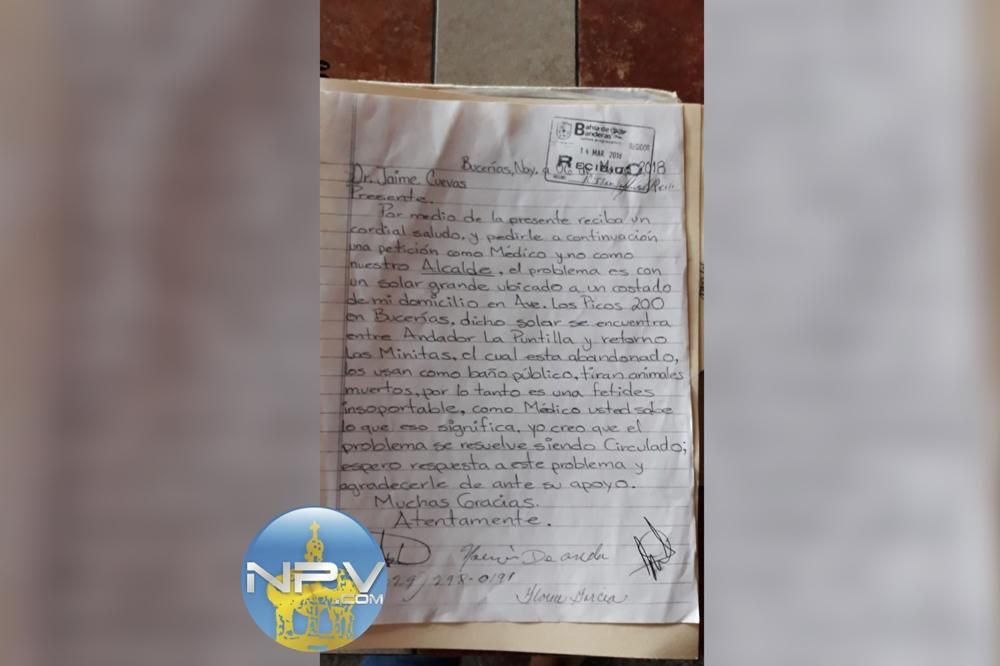 Bahía de
Banderas
REGIDOR
14 MAR 2018
RECIBIDO
Bucerías, Nay. a 06 2018
Dr. Jaime Cuevas
Presente.
Por medio de la presente reciba un
cordial saludo, y pedirle a continuación
una petición como Médico y no como
nuestro Alcalde, el problema es con
un solar grande ubicado a un costado
de mi domicilio en Ave. Las Picos 200
en Bucerías, dicho solar se encuentra
entre Andador La Puntilla y retorno
Las Minitas, el cual esta abandonado,
los usan como baño público, tiran animales
muertos, por lo tanto es una fetides
insoportable, como Médico usted sabe
lo que eso significa, yo creo que el
problema se resuelve siendo Circulado;
espero respuesta a este problema y
agradecerle de ante su apoyo.
Muchas Gracias.
Atentamente.
De anda
29, 298-0191
Gloria Garcia
NPV
.COM